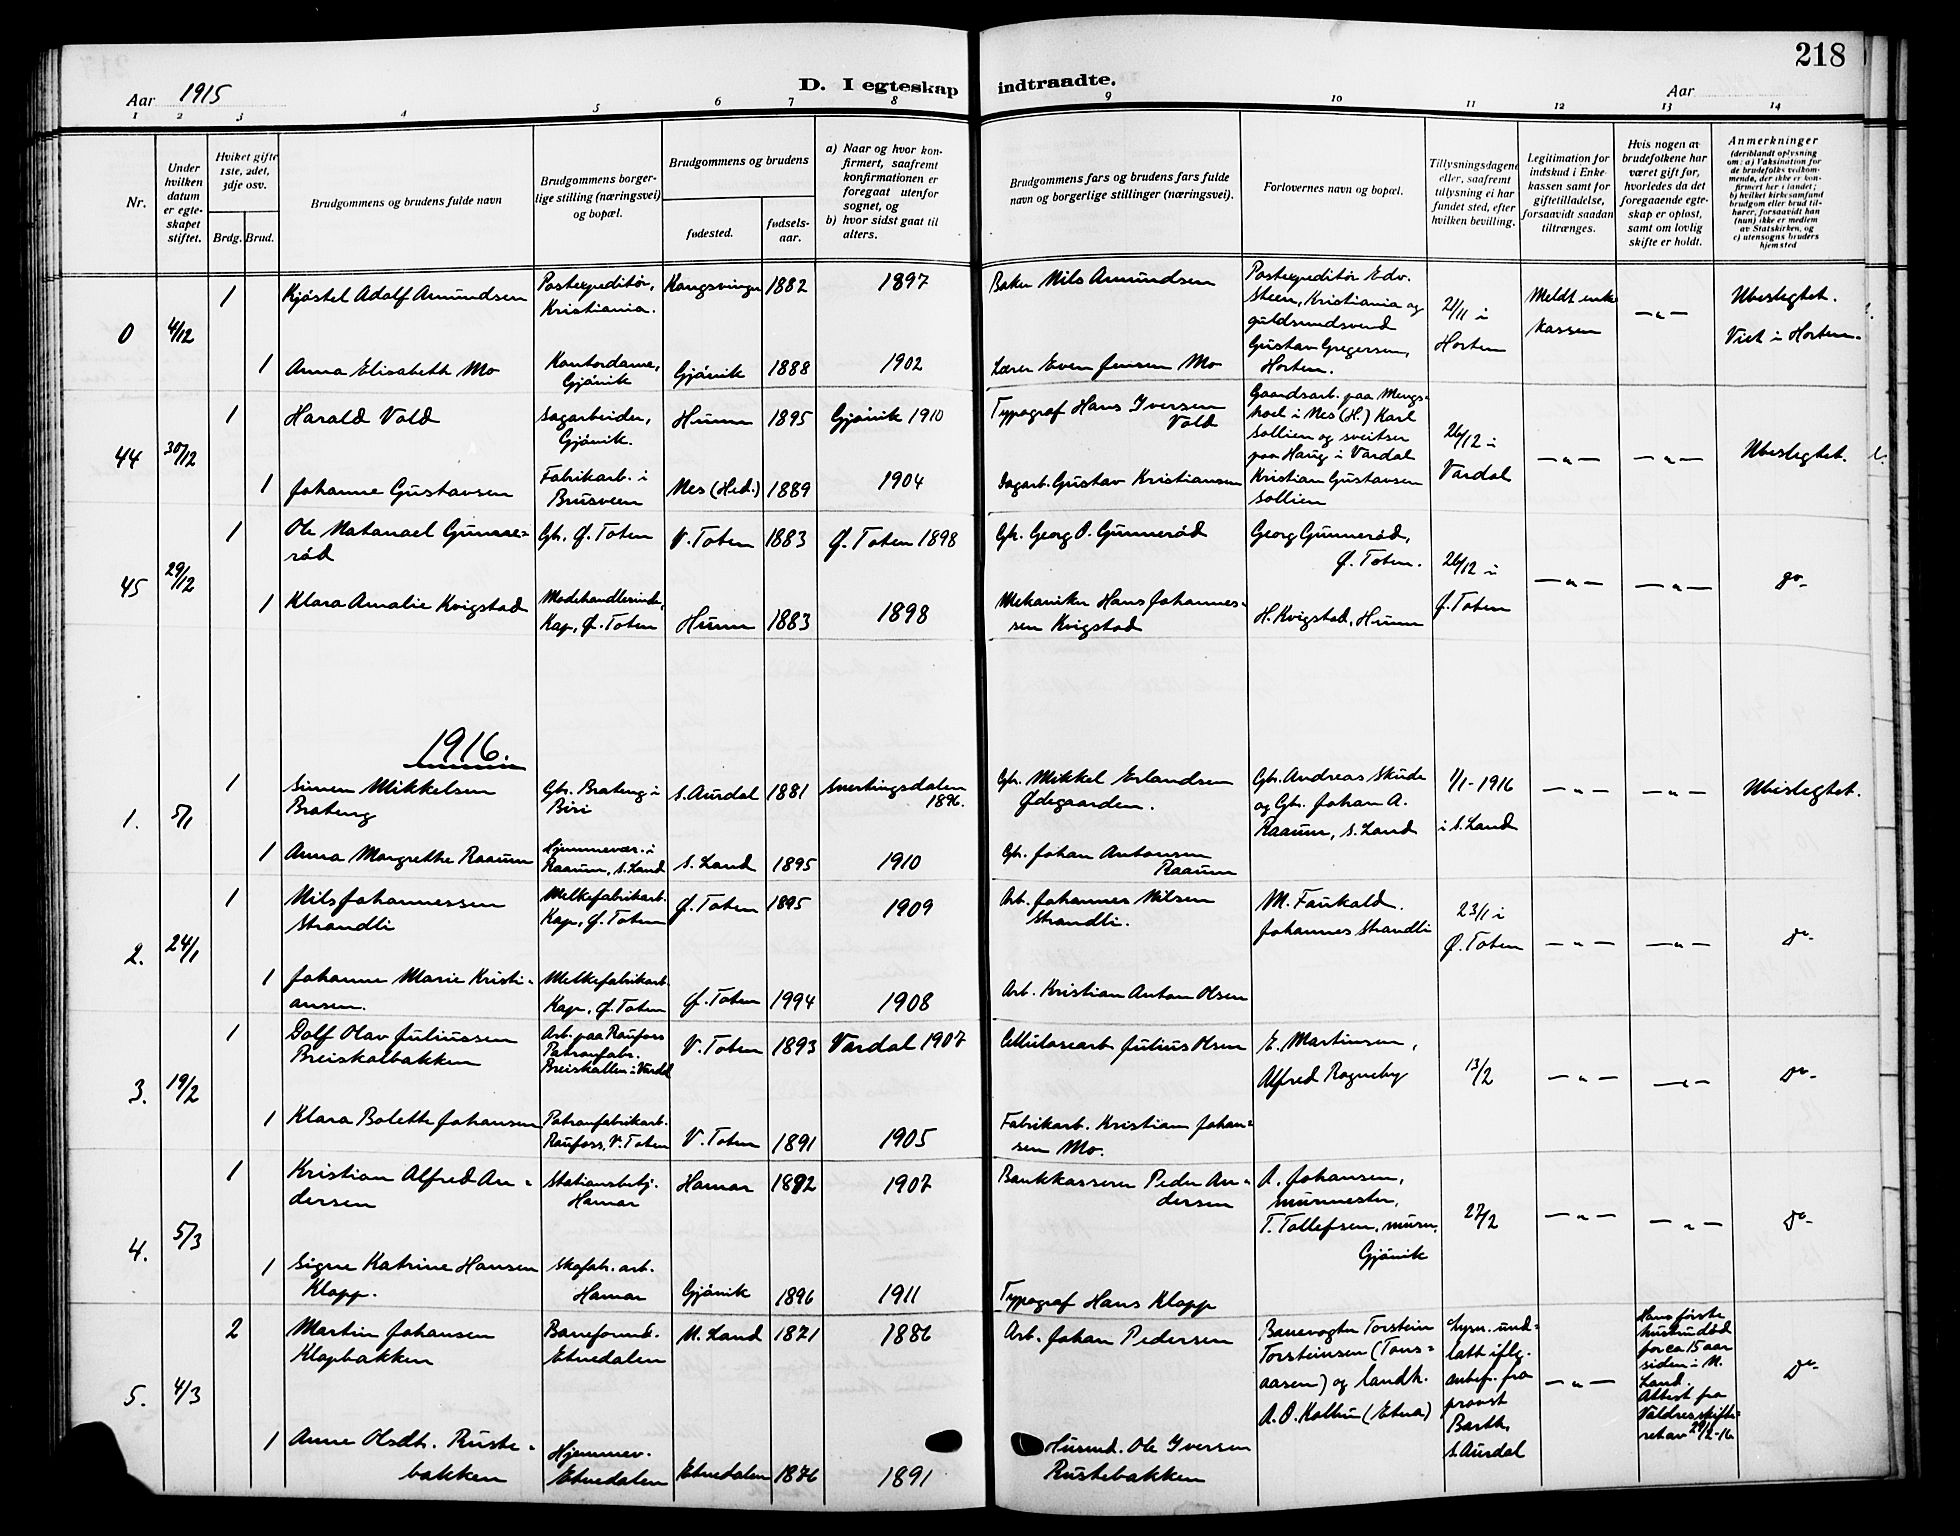 218
Aar 1915
D. I egteskap indtraadte.
Aar
1 2 3 4 5 6 7 8 9 10 11 12 13 14
Nr.
Under hvilken datum er egteskapet stiftet.
Hviket gifte 1ste, 2det, 3dje osv.
Brdg. Brud.
Brudgommens og brudens fulde navn
Brudgommens borgerlige stilling (næringsvei) og bopæl.
Brudgommens og brudens
fødested.
fødselsaar.
a) Naar og hvor konfirmert, saafremt konfirmationen er foregaat utenfor sognet, og
b) hvor sidst gaat til alters.
Brudgommens fars og brudens fars fulde navn og borgerlige stillinger (næringsvei).
Forlovernes navn og bopæl.
Tillysningsdagene eller, saafremt tillysning ei har fundet sted, efter hvilken bevilling.
Legitimation for indskud i Enkekassen samt for giftetilladelse, forsaavidt saadan tiltrænges.
Hvis nogen av brudefolkene har været gift før, hvorledes da det foregaaende egteskap er opløst, samt om lovlig skifte er holdt.
Anmerkninger
(deriblandt oplysning om: a) Vaksination for de brudefolks vedkommende, der ikke er konfirmert her i landet; b) hvilket kirkesamfund brudgom eller brud tilhører, forsaavidt han (hun) ikke er medlem av Statskirken, og c) utensogns bruders hjemsted
0 4/12
1 Kjøstel Adolf Amundsen
Postexpeditør, Kristiania.
Kongsvinger 1882 1897
Baker Nils Amundsen
Postexpeditør Edv. Steen, Kristiania og guldsmedsvend Gustav Gregersen, Horten.
21/11 i Horten
Meldt enkekassen
— " —
Ubeslegtet.
Viet i Horten.
1 Anna Elisabeth Mo
Kontordame, Gjøvik
Gjøvik 1888 1902
Lærer Even Jensen Mo
44 30/12
1 Harald Vold
Sagarbeider, Gjøvik.
Hunn 1895 Gjøvik 1910
Typograf Hans Iversen Vold
Gaardsarb. paa Mengshoel i Nes (H.) Karl Sollien og sveitser paa Haug i Vardal Kristian Gustavsen Sollien
26/12 i Vardal
— " —
— " —
Ubeslegtet.
1 Johanne Gustavsen
Fabrikarb. i Brusveen
Nes (Hed.) 1889 1904
Dagarb. Gustav Kristiansen
45 29/12
1 Ole Natanael Gunnerød
Gbr. Ø. Toten
V. Toten 1883 Ø. Toten 1898
Gbr. Georg O. Gunnerød
Georg Gunnerød, Ø. Toten.
26/12 i Ø. Toten
— " —
— " —
do-
1 Klara Amalie Kvigstad
Modehandlerinde, Kap, Ø. Toten
Hunn 1883 1898
Mekaniker Hans Johannessen Kvigstad
H. Kvigstad, Hunn
1916.
1. 5/1
1 Simen Mikkelsen Brateng
Gbr. Brateng i Biri
S. Aurdal 1881 Snertingsdalen 1896.
Gbr. Mikkel Erlandsen Ødegaarden.
Gbr. Andreas Skude og Gbr. Johan A. Raaum, S. Land
1/1-1916 i S. Land
— " —
— " —
Ubeslegtet.
1 Anna Margrethe Raaum
Hjemmevær. i Raaum, S. Land
S. Land 1895 1910
Gbr. Johan Antonsen Raaum
2. 24/1
1 Nils Johannessen Strandli
Melkefabrikarb. Kap, Ø. Toten
Ø. Toten 1895 1909
Arb. Johannes Nilsen Strandli.
M. Faukald.
Johannes Strandli
23/1 i Ø. Toten
— " —
— " —
do-
1 Johanne Marie Kristiansen.
Melkefabrikarb. Kap, Ø. Toten
Ø. Toten 1994 1908
Arb. Kristian Anton Olsen
3. 19/2
1 Dolf Olav Juliussen Breiskalbakken
Arb. paa Raufoss Patronfabr. Breiskallen i Vardal
V. Toten 1893 Vardal 1907
Cellulosearb. Julius Olsen
E. Martinsen,
Alfred Rogneby
13/2
— " —
— " —
do-
1 Klara Bolette Johansen
Patronfabrikarb. Raufoss, V. Toten
V. Toten 1891 1905
Fabrikarb. Kristian Johansen Mo.
4. 5/3
1 Kristian Alfred Andersen
Stationsbetj. Hamar
Hamar 1892 1907
Bankkasserer Peder Andersen
A. Johansen, murmester,
T. Tollefsen, murer, Gjøvik
27/2
— " —
— " —
do-
1 Signe Katrine Hansen Klopp.
Skofabr. arb. Hamar
Gjøvik 1896 1911
Typograf Hans Klopp
5. 4/3
2 Martin Johansen Klopbakken
Baneform. Etnedalen
N. Land 1871 1886
Arb. Johan Pedersen
Banevogter Torstein Torsteinsen (Tonsaasen) og landh. A. O. Kolbu (Etna)
Lysn. undlatt iflg. anbef. fra provst Barth, S. Aurdal
— " —
Hans første hustru død for ca 15 aar siden i N. Land. Attest fra Valdres skifteret av 29/2-16
do-
1 Anne Olsdt. Rustebakken
Hjemmev. Etnedalen
Etnedalen 1876 1891
Husmd. Ole Iversen Rustebakken